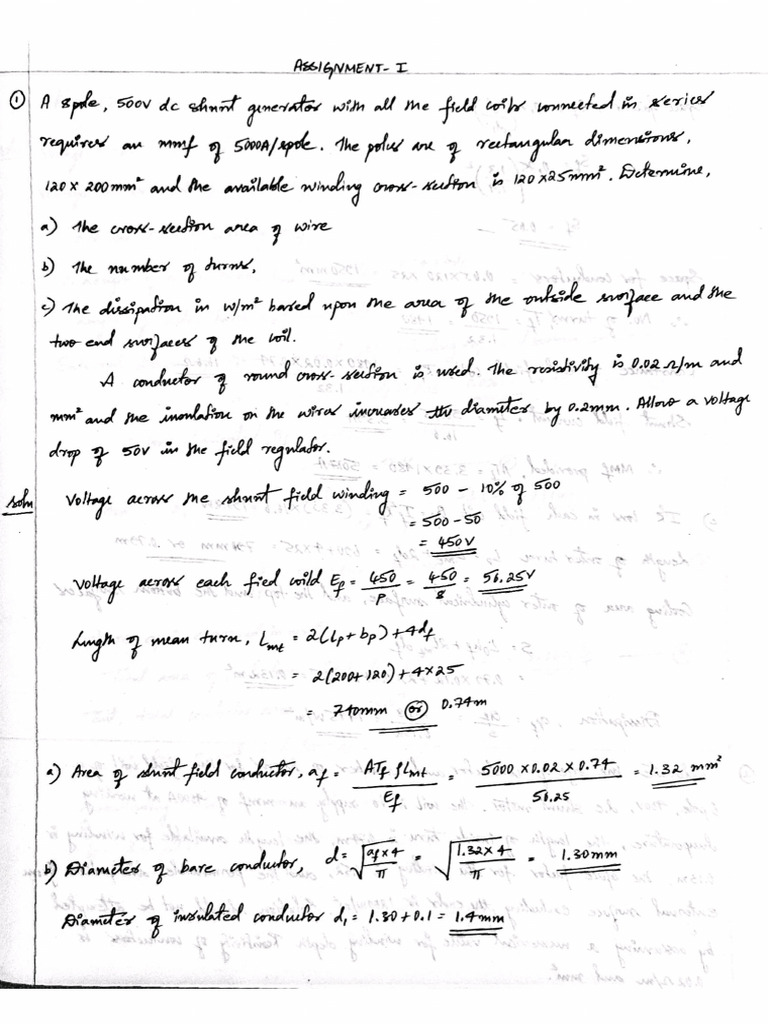 ASSIGNMENT- I
① A 8 pole, 500V dc shunt generator with all the field coils connected in series
requires an mmf of 5000A/spole. The poles are of rectangular dimensions,
120 x 200mm² and the available winding cross-section is 120x25mm². Determine,
a) The cross-section area of wire
b) The number of turns,
c) The dissipation in W/m² based upon the area of the outside surface and the
two end surfaces of the coil.
A conductor of round cross-section is used. The resistivity is 0.02 Ω/m and
mm² and the insulation on the wires increases the diameter by 0.2mm. Allow a voltage
drop of 50V in the field regulator.
soln Voltage across the shunt field winding = 500 - 10% of 500
= 500 - 50
= 450V
Voltage across each fied coild Ef = 450/P = 450/8 = 56.25V
Length of mean turn, Lmt = 2(Lp + bp) + 4df
= 2(200+120) + 4x25
= 740mm (or) 0.74m
a) Area of shunt field conductor, af = ATf ρLmt / Ef = 5000 x 0.02 x 0.74 / 56.25 = 1.32 mm²
b) Diameter of bare conductor, d = √(af x 4 / π) = √(1.32 x 4 / π) = 1.30mm
Diameter of insulated conductor d₁ = 1.30 + 0.1 = 1.4mm